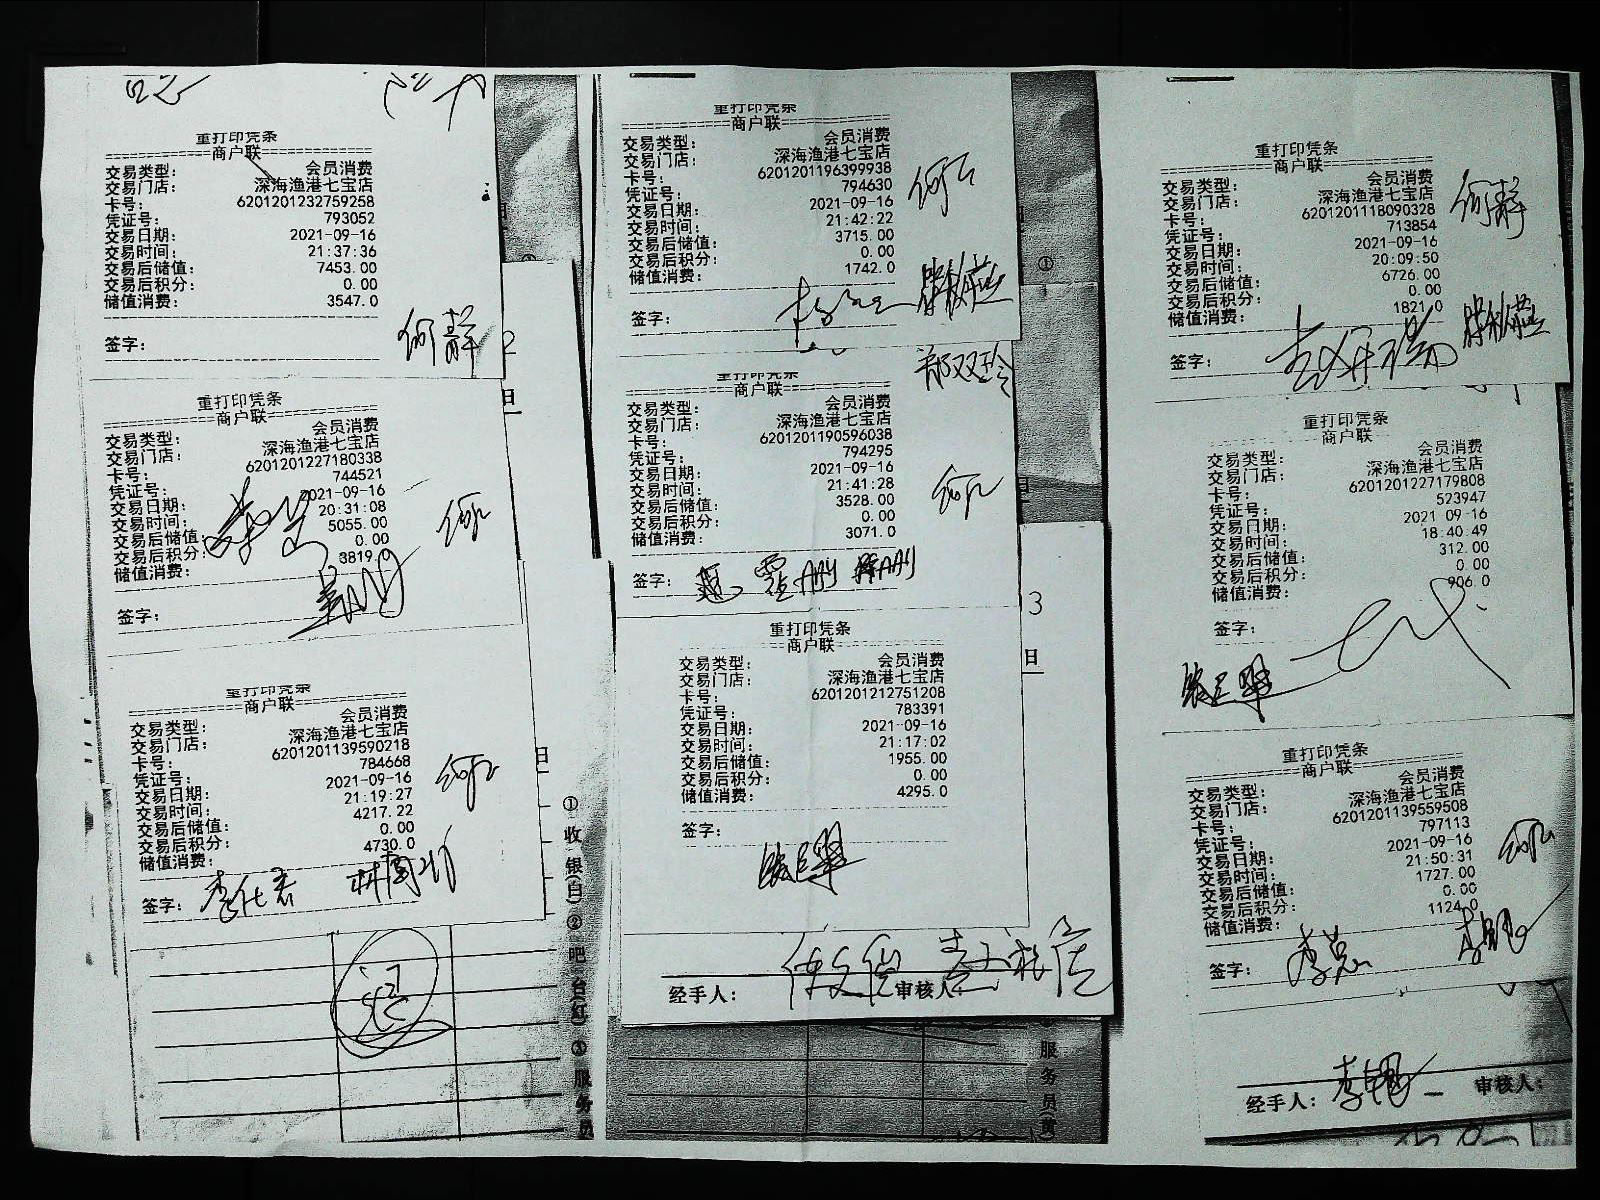 重打印凭条
商户联
交易类型: 会员消费
交易门店: 深海渔港七宝店
卡号: 6201201232759258
凭证号: 793052
交易日期: 2021-09-16
交易时间: 21:37:36
交易后储值: 7453.00
交易后积分: 0.00
储值消费: 3547.0
签字:
何静
重打印凭条
商户联
交易类型: 会员消费
交易门店: 深海渔港七宝店
卡号: 6201201227180338
凭证号: 744521
交易日期: 2021-09-16
交易时间: 20:31:08
交易后储值: 5055.00
交易后积分: 0.00
储值消费: 3819.0
签字:
重打印凭条
商户联
交易类型: 会员消费
交易门店: 深海渔港七宝店
卡号: 6201201139590218
凭证号: 784668
交易日期: 2021-09-16
交易时间: 21:19:27
交易后储值: 4217.22
交易后积分: 0.00
储值消费: 4730.0
签字:
日
①收银(白)②吧台(红)③服务员
重打印凭条
商户联
交易类型: 会员消费
交易门店: 深海渔港七宝店
卡号: 6201201196399938
凭证号: 794630
交易日期: 2021-09-16
交易时间: 21:42:22
交易后储值: 3715.00
交易后积分: 0.00
储值消费: 1742.0
签字:
郑双玲
重打印凭条
商户联
交易类型: 会员消费
交易门店: 深海渔港七宝店
卡号: 6201201190596038
凭证号: 794295
交易日期: 2021-09-16
交易时间: 21:41:28
交易后储值: 3528.00
交易后积分: 0.00
储值消费: 3071.0
签字:
3
日
重打印凭条
商户联
交易类型: 会员消费
交易门店: 深海渔港七宝店
卡号: 6201201212751208
凭证号: 783391
交易日期: 2021-09-16
交易时间: 21:17:02
交易后储值: 1955.00
交易后积分: 0.00
储值消费: 4295.0
签字:
经手人: 审核人:
服务员(黄)
重打印凭条
商户联
交易类型: 会员消费
交易门店: 深海渔港七宝店
卡号: 6201201118090328
凭证号: 713854
交易日期: 2021-09-16
交易时间: 20:09:50
交易后储值: 6726.00
交易后积分: 0.00
储值消费: 1821.0
何静
签字:
重打印凭条
商户联
交易类型: 会员消费
交易门店: 深海渔港七宝店
卡号: 6201201227179808
凭证号: 523947
交易日期: 2021-09-16
交易时间: 18:40:49
交易后储值: 312.00
交易后积分: 0.00
储值消费: 906.0
签字:
重打印凭条
商户联
交易类型: 会员消费
交易门店: 深海渔港七宝店
卡号: 6201201139559508
凭证号: 797113
交易日期: 2021-09-16
交易时间: 21:50:31
交易后储值: 1727.00
交易后积分: 0.00
储值消费: 1124.0
签字:
经手人: 审核人: